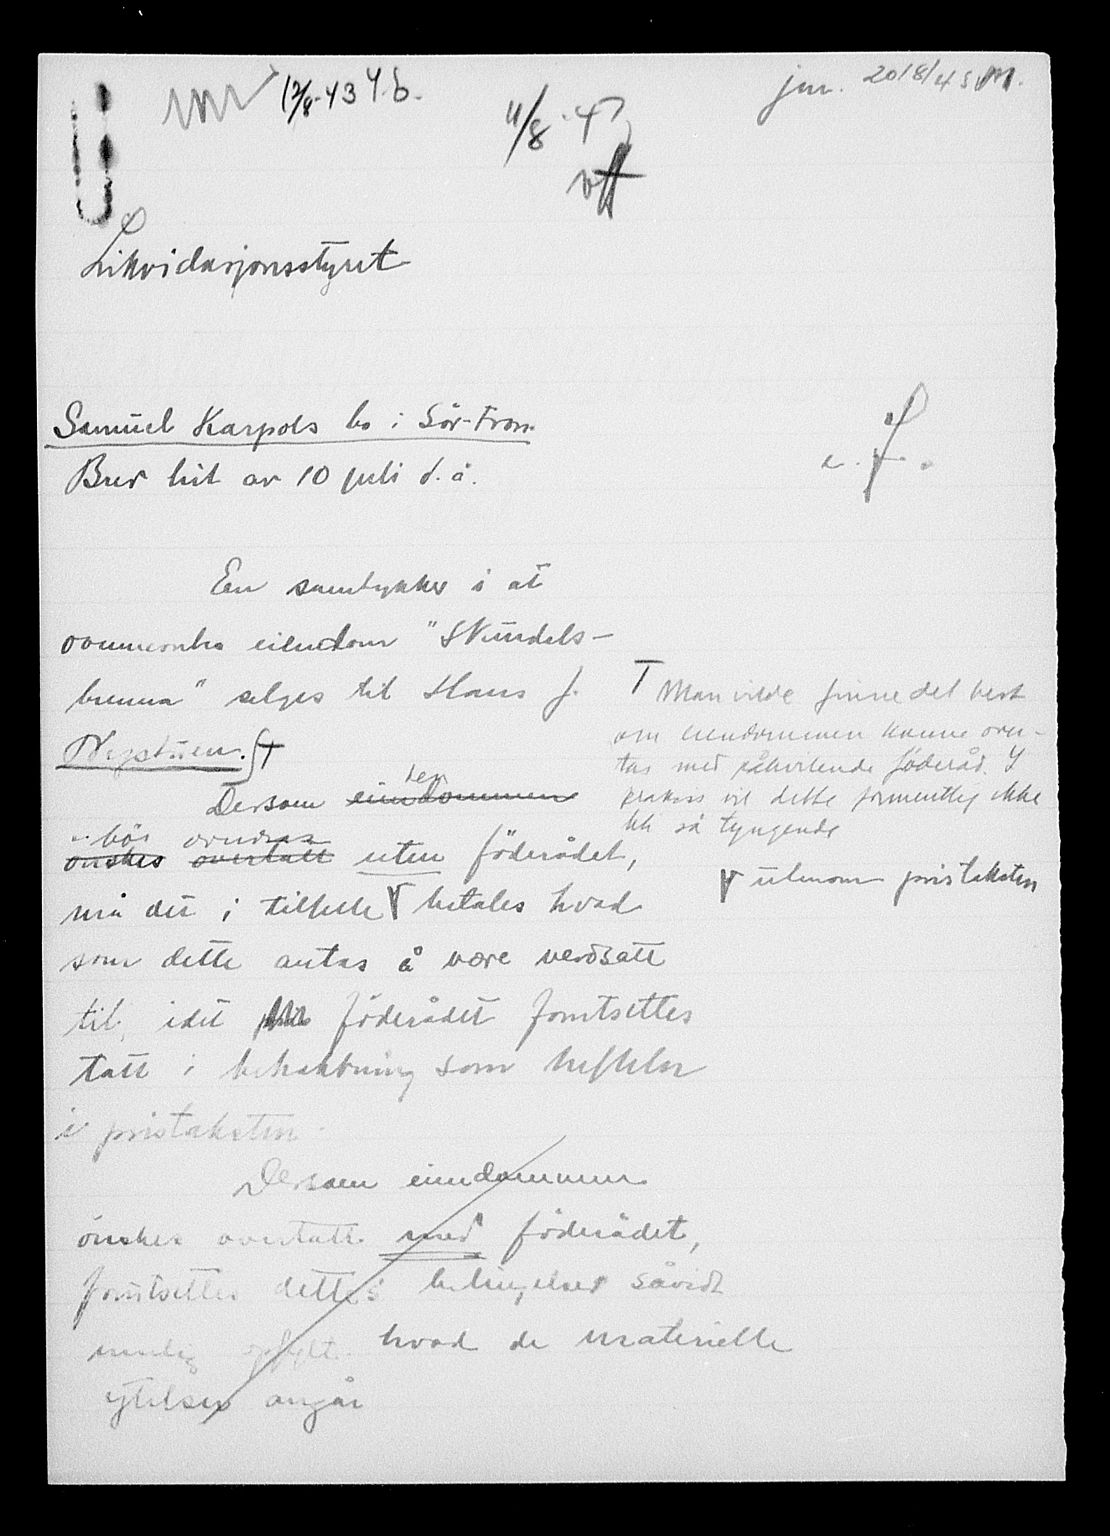 12/8-43 Y.b.
11/8-43
jnr. 2018/43 M.
Likvidasjonsstyret
Samuel Karpols bo i Sör-Fron
Brev hit av 10 juli d.å.
En samtykker i at
ovennevnte eiendom "Skundels-
brenna" selges til Hans J.
Nystuen.
Dersom eiendommen
den
bör overdras
önskes overtatt uten föderådet,
må det i tilfelle betales hvad
som dette antas å være verdsatt
til, idet föderådet forutsettes
tatt i betraktning som heftelse
i pristaksten.
Dersom eiendommen
önskes overtatt med föderådet,
forutsettes dettes betingelser såvidt
mulig opfylt hvad de materielle
ytelser angår
Man vilde finne det best
om eiendommen kunne over-
tas med påhvilende föderåd. I
praksis vil dette formentlig ikke
bli så tyngende
utenom pristaksten